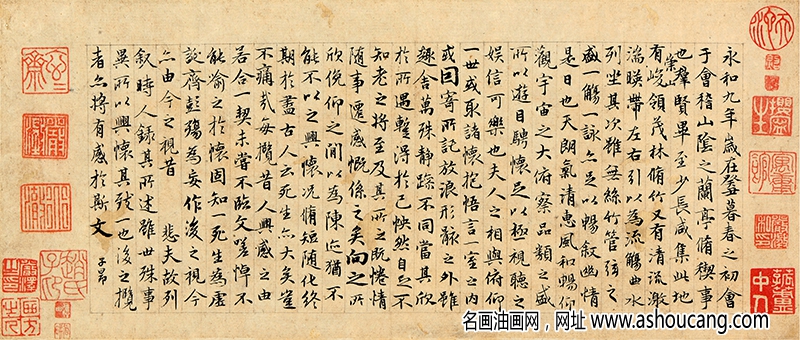 永和九年歲在癸丑暮春之初會
于會稽山陰之蘭亭脩禊事
也羣賢畢至少長咸集此地
有崇山峻領茂林脩竹又有清流激
湍暎帶左右引以為流觴曲水
列坐其次雖無絲竹管弦之
盛一觴一詠亦足以暢敘幽情
是日也天朗氣清惠風和暢仰
觀宇宙之大俯察品類之盛
所以遊目騁懷足以極視聽之
娛信可樂也夫人之相與俯仰
一世或取諸懷抱悟言一室之內
或因寄所託放浪形骸之外雖
趣舍萬殊靜躁不同當其欣
於所遇暫得於己怏然自足不
知老之將至及其所之既惓情
隨事遷感慨係之矣向之所
欣俛仰之間以為陳迹猶不
能不以之興懷況脩短隨化終
期於盡古人云死生亦大矣豈
不痛哉每攬昔人興感之由
若合一契未嘗不臨文嗟悼不
能喻之於懷固知一死生為虛
誕齊彭殤為妄作後之視今
亦由今之視昔 悲夫故列
敘時人錄其所述雖世殊事
異所以興懷其致一也後之攬
者亦將有感於斯文 子昂
名画油画网，网址 www.ashoucang.com